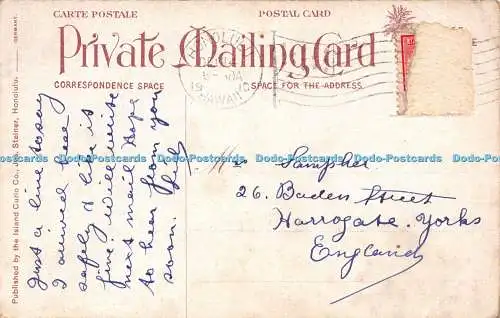 CARTE POSTALE
POSTAL CARD
Private Mailing Card
CORRESPONDENCE SPACE
SPACE FOR THE ADDRESS.
HONOLULU
1910
HAWAII
GERMANY.
Published by the Island Curio Co., Jas. Steiner, Honolulu.
Just a line to say
I arrived here
safely & life is
fine. Will write
next mail. Hope
to hear from you
soon.
Mr Sampher
26. Baden Street
Harrogate. Yorks
England
Dodo-Postcards Dodo-Postcards Dodo-Postcards Dodo-Postcards Dodo-Postcards Dodo-Postcards Dodo-Postcards